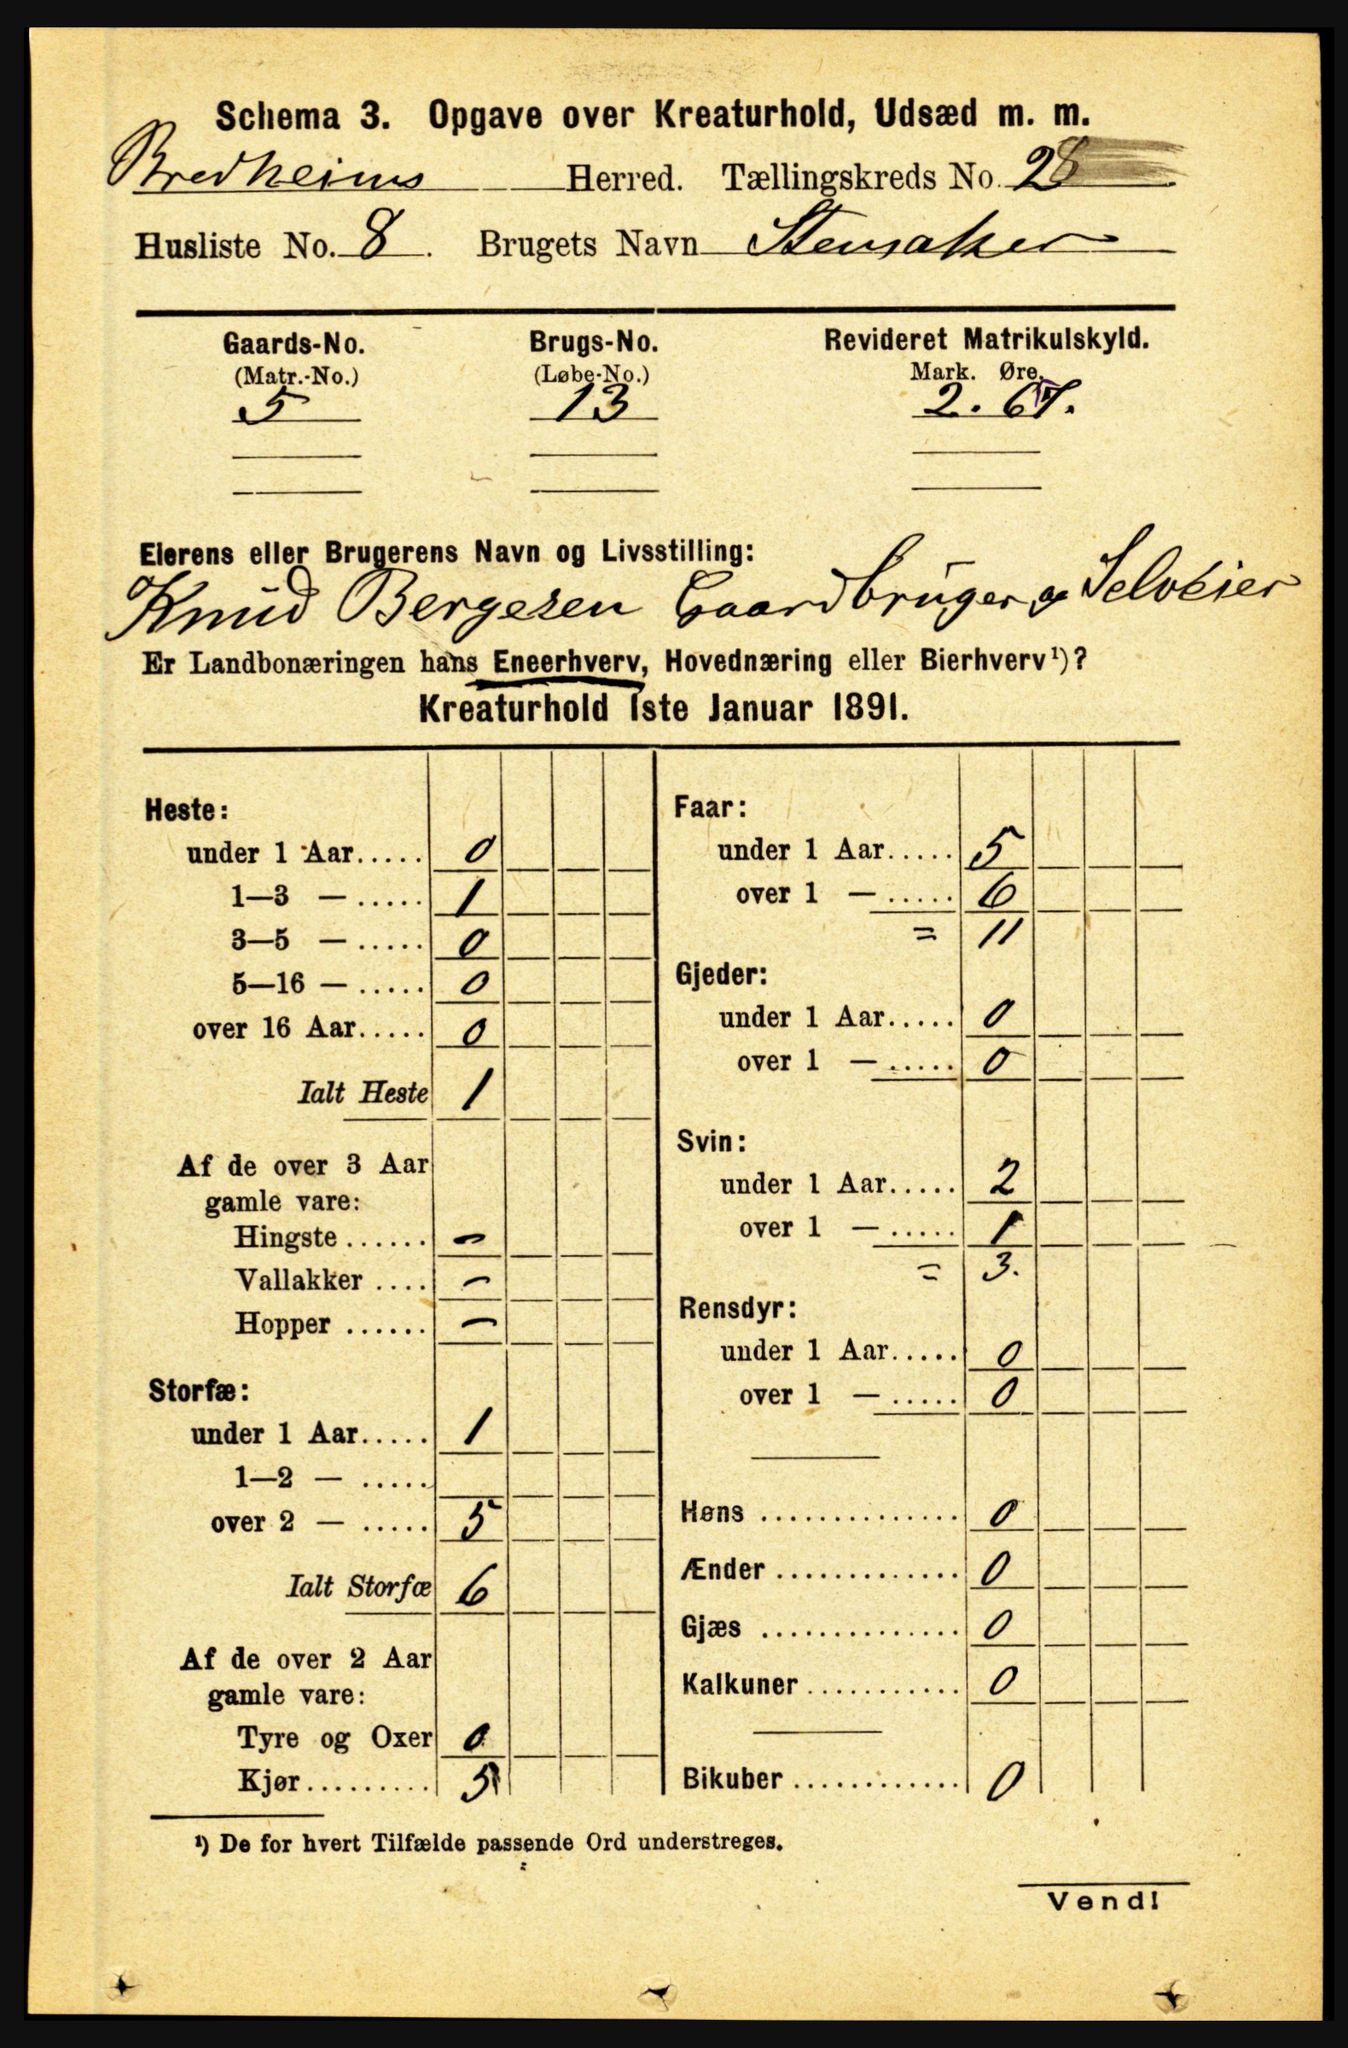 Schema 3. Opgave over Kreaturhold, Udsæd m. m.
Bredheims Herred. Tællingskreds No. 2
Husliste No. 8. Brugets Navn Stensaker
Gaards-No. Brugs-No. Revideret Matrikulskyld.
(Matr.-No.) (Løbe-No.) Mark. Øre.
5 13 2. 67.
Eierens eller Brugerens Navn og Livsstilling:
Knud Bergesen Gaardbruger og Selveier
Er Landbonæringen hans Eneerhverv, Hovednæring eller Bierhverv¹)?
Kreaturhold 1ste Januar 1891.
Heste:
under 1 Aar..... 0
1—3 — ..... 1
3—5 — ..... 0
5—16 — ..... 0
over 16 Aar..... 0
Ialt Heste 1
Af de over 3 Aar
gamle vare:
Hingste ...... –
Vallakker .... –
Hopper ...... –
Storfæ:
under 1 Aar..... 1
1—2 — .....
over 2 — ..... 5
Ialt Storfæ 6
Af de over 2 Aar
gamle vare:
Tyre og Oxer 0
Kjør......... 5
Faar:
under 1 Aar..... 5
over 1 — ..... 6
= 11
Gjeder:
under 1 Aar..... 0
over 1 — ..... 0
Svin:
under 1 Aar..... 2
over 1 — ..... 1
= 3.
Rensdyr:
under 1 Aar..... 0
over 1 — ..... 0
Høns .............. 0
Ænder ............. 0
Gjæs .............. 0
Kalkuner ........... 0
Bikuber ............ 0
¹) De for hvert Tilfælde passende Ord understreges.
Vend!